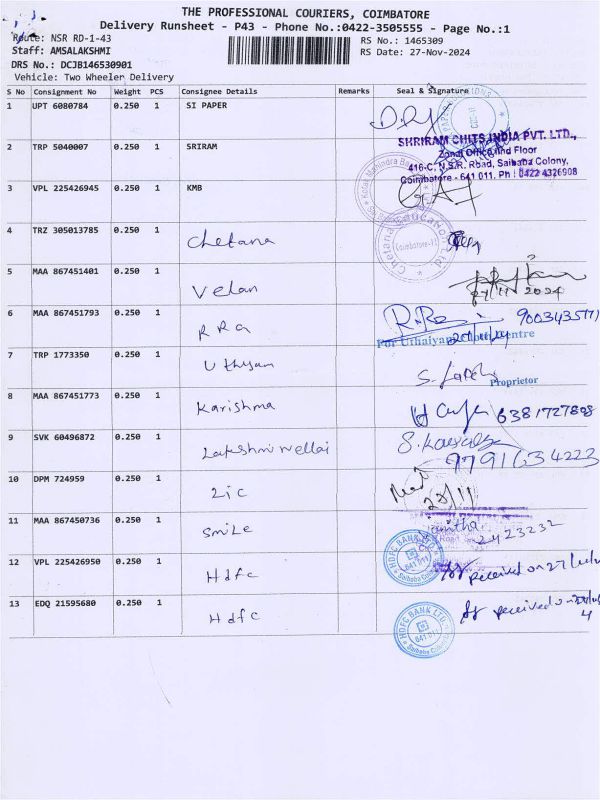 THE PROFESSIONAL COURIERS, COIMBATORE
Delivery Runsheet - P43 - Phone No.:0422-3505555 - Page No.:1
Route: NSR RD-1-43
RS No.: 1465309
Staff: AMSALAKSHMI
RS Date: 27-Nov-2024
DRS No.: DCJB146530901
Vehicle: Two Wheeler Delivery
S No Consignment No Weight PCS Consignee Details Remarks Seal & Signature
1 UPT 6080784 0.250 1 SI PAPER
2 TRP 5040007 0.250 1 SRIRAM
SHRIRAM CHITS INDIA PVT. LTD.,
Zonal Office IInd Floor
416-C, N.S.R. Road, Saibaba Colony,
Coimbatore - 641 011. Ph : 0422 4326908
3 VPL 225426945 0.250 1 KMB
Kotak Mahindra
4 TRZ 305013785 0.250 1 Chetana
Chetana Education Ltd
Coimbatore-11
5 MAA 867451401 0.250 1 Velan
27/11/2024
6 MAA 867451793 0.250 1 RRa
For Uthaiyam Centre
7 TRP 1773350 0.250 1 Uthyam
Proprietor
8 MAA 867451773 0.250 1 Karishma
6381727808
9 SVK 60496872 0.250 1 Lakshmi vellai
9791634223
10 DPM 724959 0.250 1 Lic
11 MAA 867450736 0.250 1 Smile
2423232
12 VPL 225426950 0.250 1 Hdfc
HDFC BANK LTD.
641 011
received on 27/11/24
13 EDQ 21595680 0.250 1 Hdfc
HDFC BANK LTD.
641 011
received on